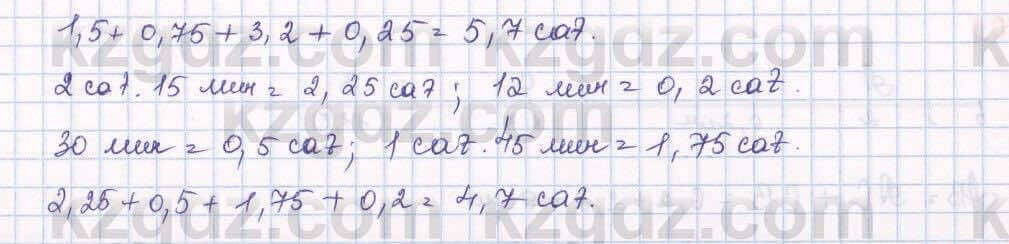 1,5 + 0,75 + 3,2 + 0,25 = 5,7 сағ.
2 сағ. 15 мин = 2,25 сағ; 12 мин = 0,2 сағ.
30 мин = 0,5 сағ; 1 сағ. 45 мин = 1,75 сағ.
2,25 + 0,5 + 1,75 + 0,2 = 4,7 сағ.
kzgdz.com